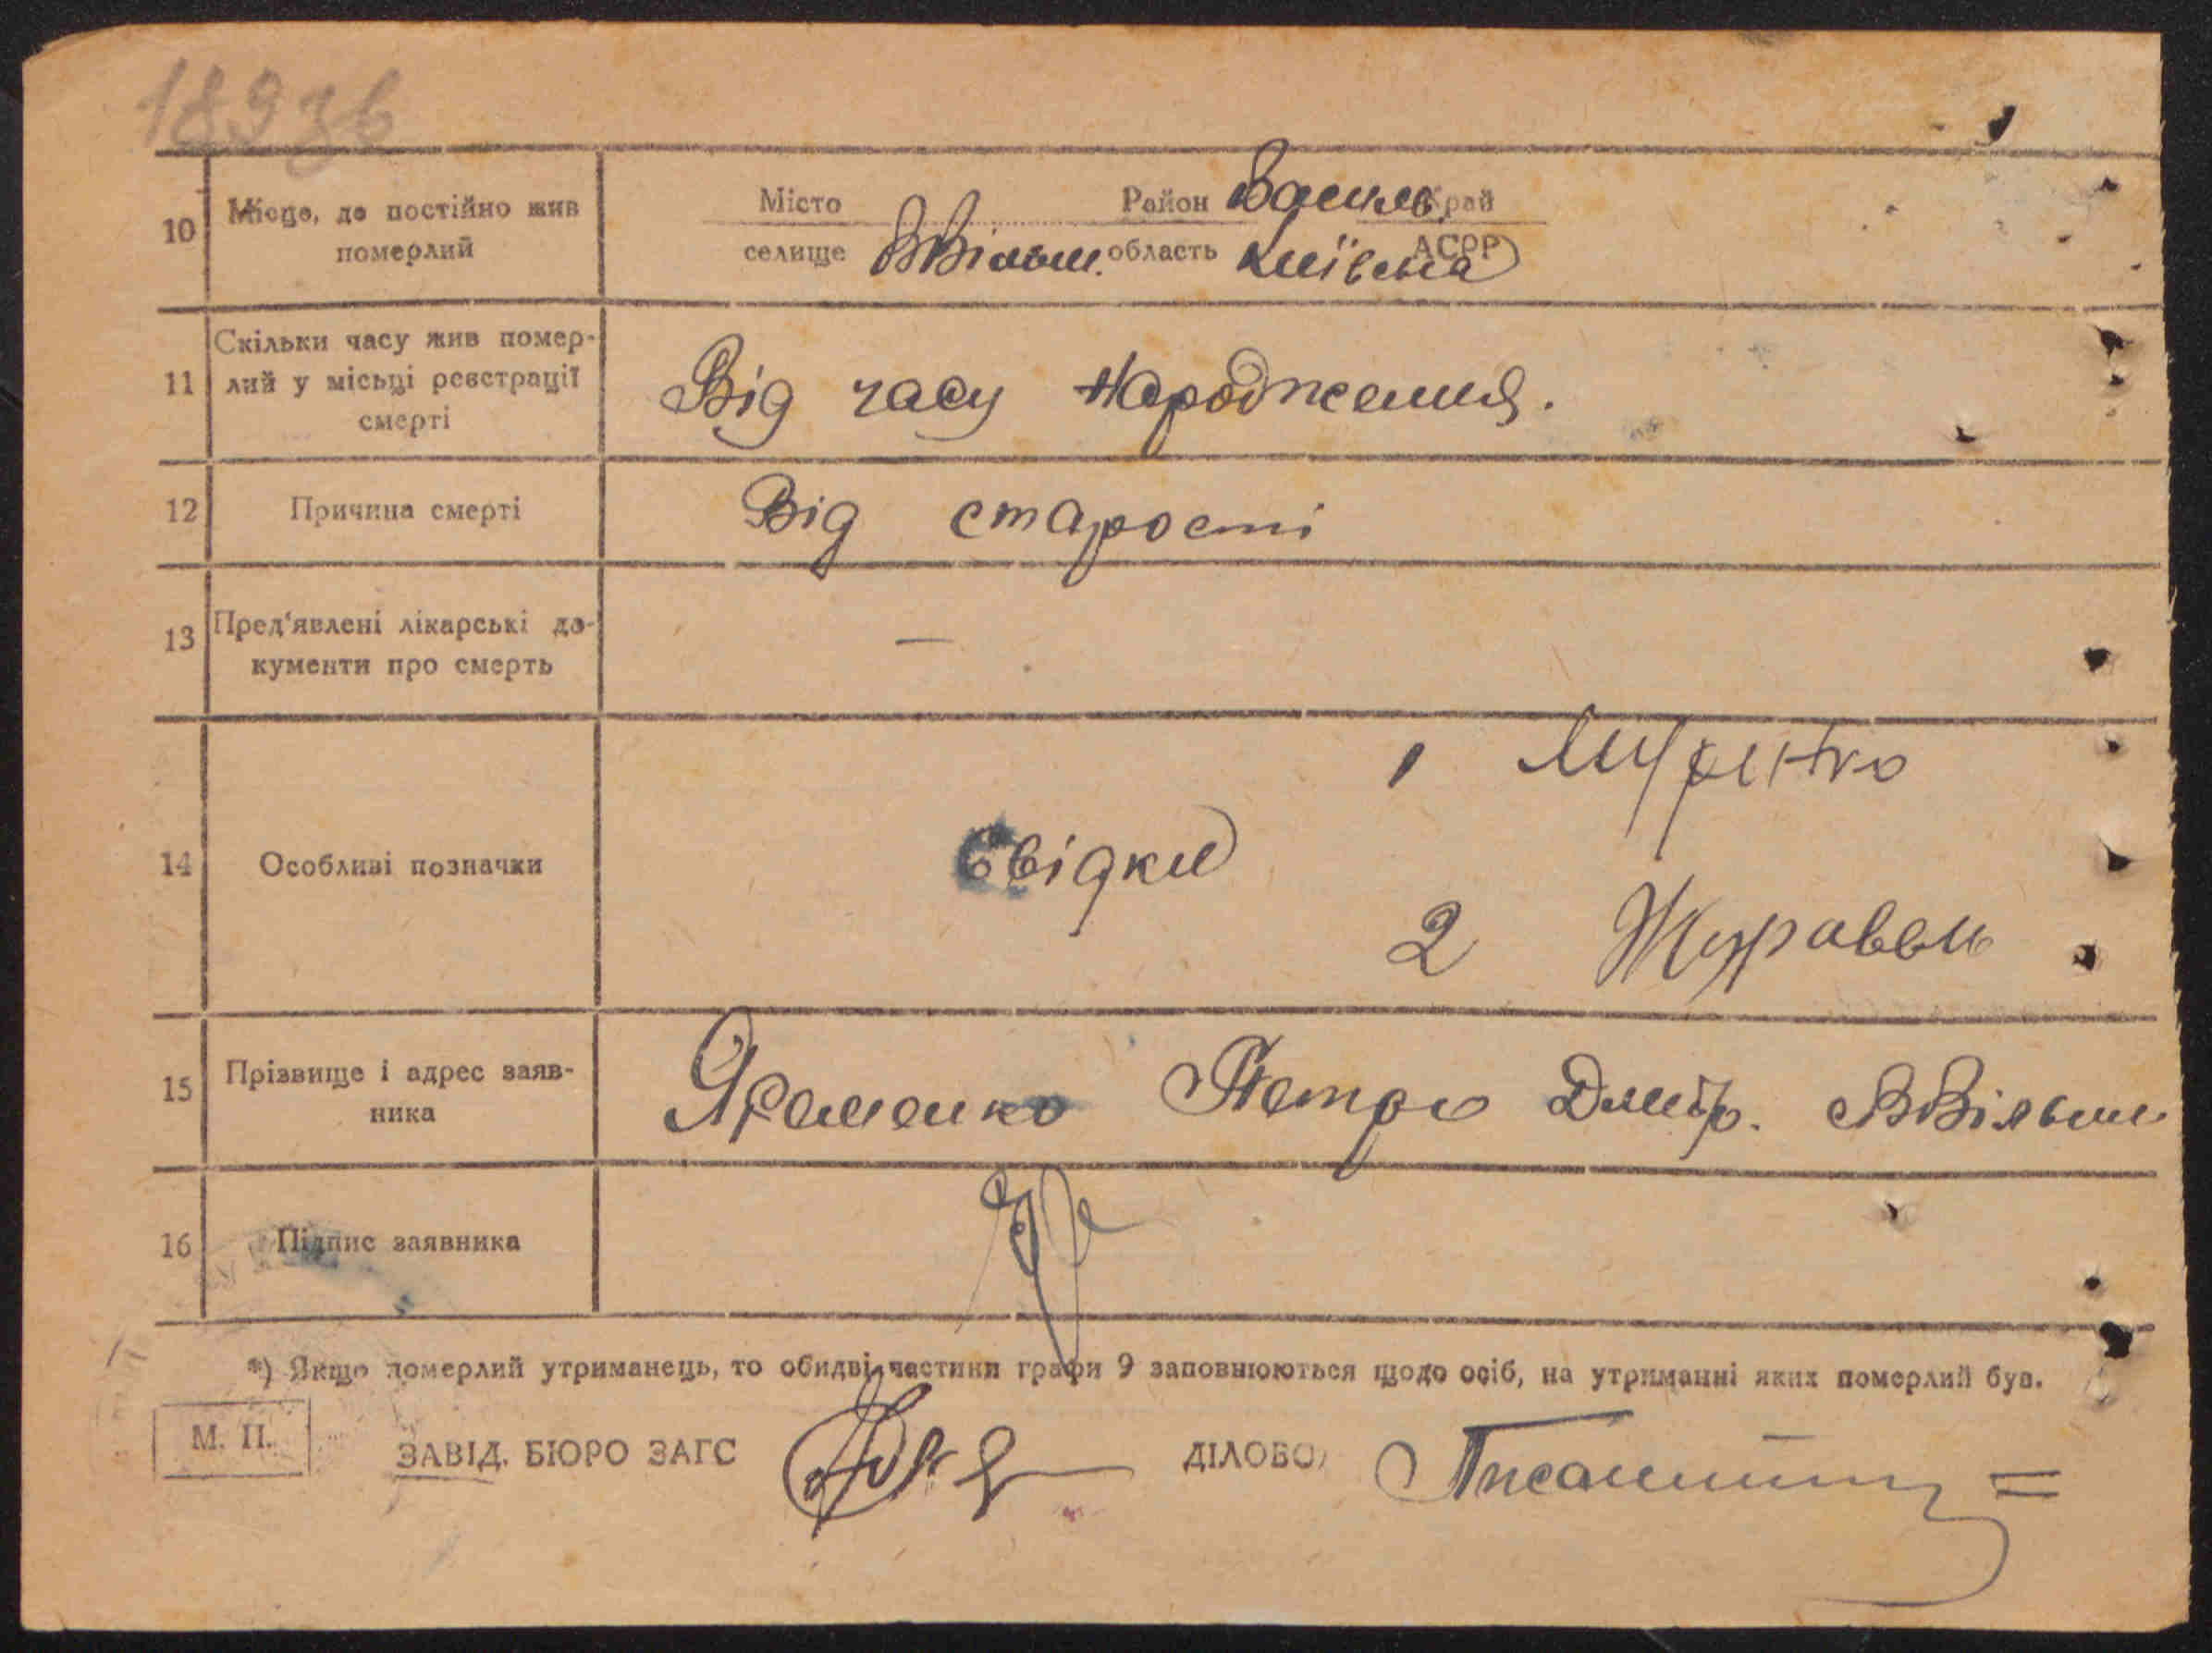 18936
10 Місце, де постійно жив
померлий
Місто Район Васильк. Край
селище ВВільш. область Київська АСРР
11 Скільки часу жив помер-
лий у місьці реєстрації
смерті
Від часу народження.
12 Причина смерті Від старости
13 Пред'явлені лікарські до-
кументи про смерть
—
14 Особливі позначки
Свідки
1
2 Журавель
15 Прізвище і адрес заяв-
ника
Яременко Петро Дмитр. ВВільш
16 Підпис заявника
*) Якщо померлий утриманець, то обидві частини графи 9 заповнюються щодо осіб, на утриманні яких померлий був.
М. П.
ЗАВІД. БЮРО ЗАГС ДІЛОВОД